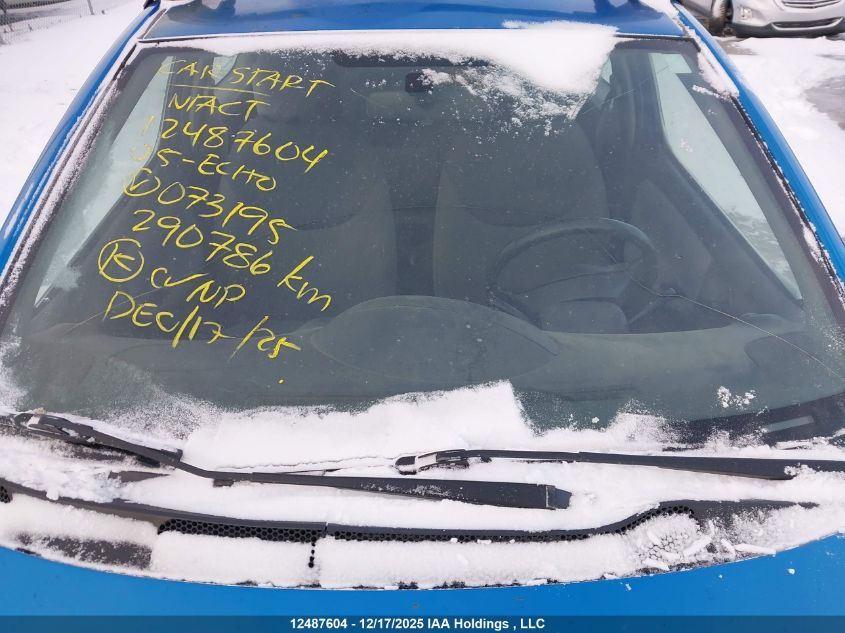 CAR START
NTACT
12487604
05-ECHO
Ⓥ 073195
290786 km
Ⓚ W/NP
DEC/17/25.
12487604 - 12/17/2025 IAA Holdings , LLC